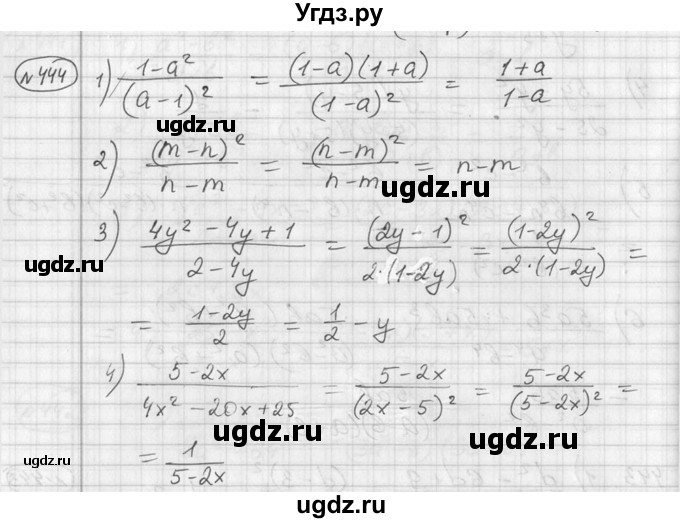 Угдз.ру
№444 1) (1-a²)/(a-1)² = (1-a)(1+a)/(1-a)² = (1+a)/(1-a)
ugdz.ru
ugdz.ru
2) (m-n)²/(n-m) = (n-m)²/(n-m) = n-m
ugdz.ru
3) (4y² - 4y + 1)/(2-4y) = (2y-1)²/(2·(1-2y)) = (1-2y)²/(2·(1-2y)) =
ugdz.ru
ugdz.ru
= (1-2y)/2 = 1/2 - y
ugdz.ru
4) (5-2x)/(4x² - 20x + 25) = (5-2x)/(2x-5)² = (5-2x)/(5-2x)² =
ugdz.ru
= 1/(5-2x)
ugdz.ru
ugdz.ru